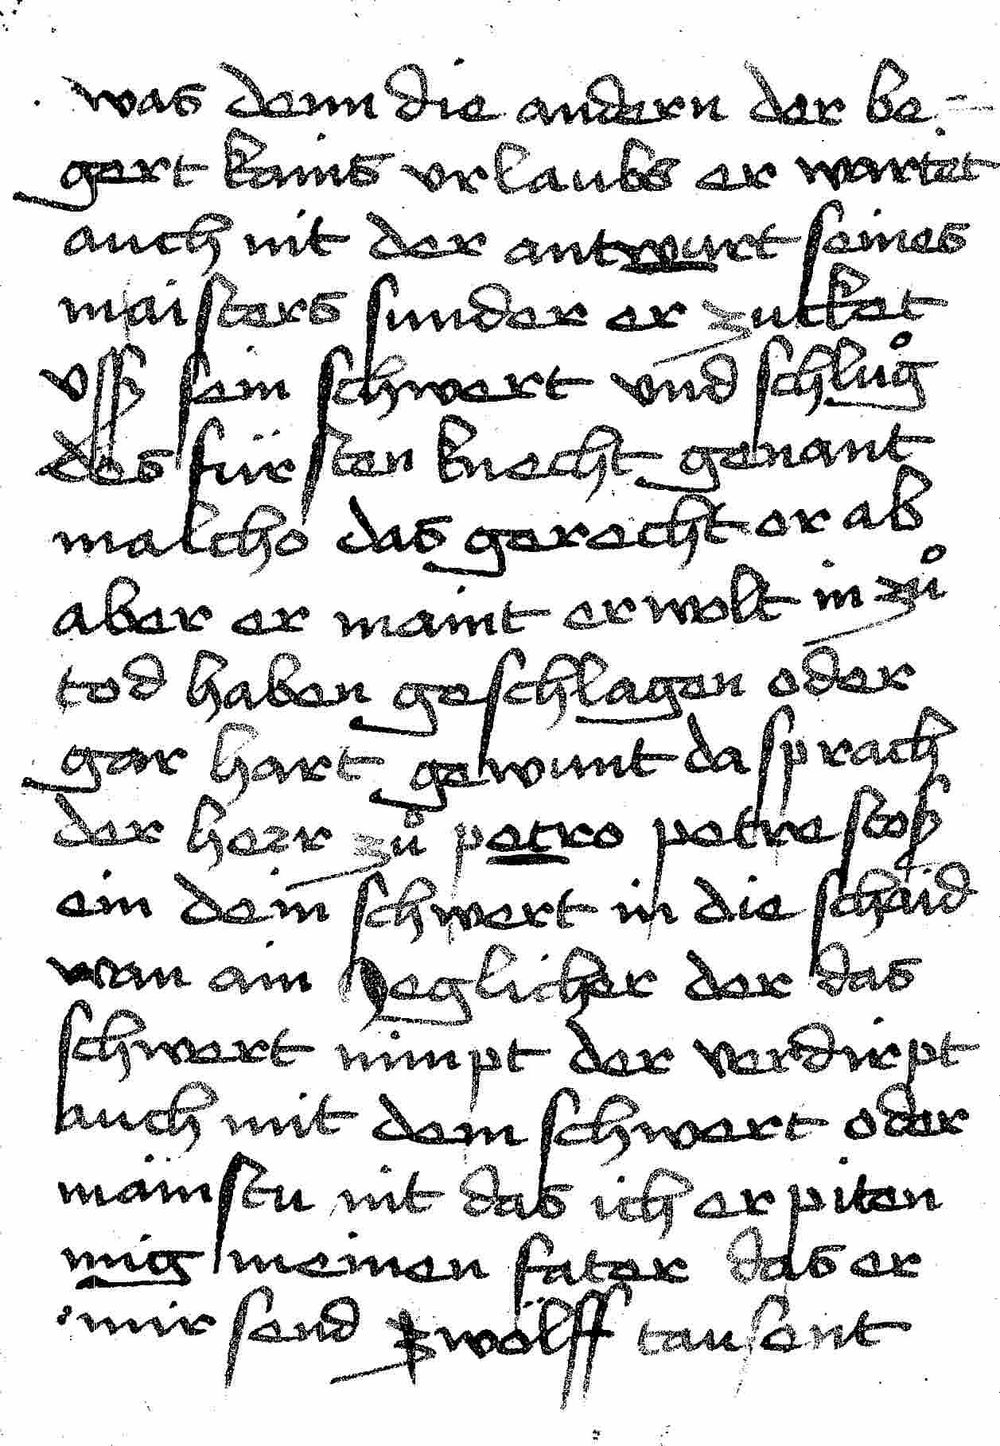 was denn die andern der be-
gert kains vrlaubs er wartet
auch nit der antwurt seines
maisters sunder er zucket
vß sein schwert vnd schlůg
des fürsten knecht genant
malcho das gerecht or ab
aber er maint er wolt in zů
tod haben geschlagen oder
gar hart gewunt da sprach
der herr zů petro petre stoß
ein dein schwert in die schaid
wan ain yeglicher der das
schwert nimpt der verdirpt
auch mit dem schwert oder
mainstu nit das ich erpiten
mig meinen fater das er
mir send zwölff tausent